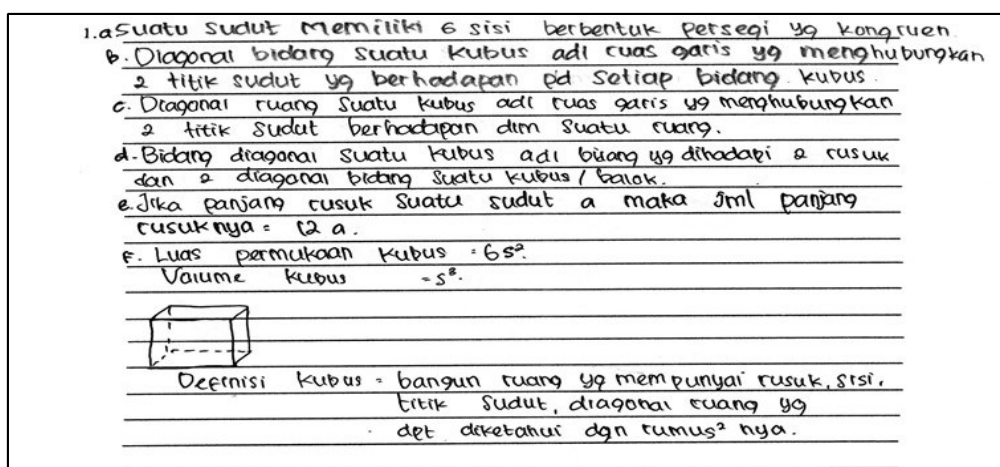 1.a Suatu sudut memiliki 6 sisi berbentuk persegi yg kongruen.
b. Diagonal bidang suatu kubus adl ruas garis yg menghubungkan
2 titik sudut yg berhadapan pd setiap bidang kubus.
c. Diagonal ruang suatu kubus adl ruas garis yg menghubungkan
2 titik sudut berhadapan dlm suatu ruang.
d. Bidang diagonal suatu kubus adl bidang yg dihadapi 2 rusuk
dan 2 diagonal bidang suatu kubus / balok.
e. Jika panjang rusuk suatu sudut a maka jml panjang
rusuknya = 12 a.
F. Luas permukaan kubus = 6s².
Volume kubus = s³.
Definisi kubus = bangun ruang yg mempunyai rusuk, sisi,
titik sudut, diagonal ruang yg
dpt diketahui dgn rumus² nya.